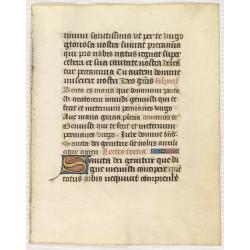 tuum sanctissima ut per te virgo
gloriosa nostra sumat precamina
que pro nobis natus regnat super
ethera et sua caritate nostra deleat
tur peramina Tu autem domine
miserere nostri Deo gras
Beata es maria que dominum porta
sti creatorem mundi genuisti qui te
fecit et in eternum permanes virgo
Aue maria gracia plena dominus te
Genuisti qui te fecit et in eternum
permanes virgo Jube domine bndi
Sancta dei genitrix sit nobis auxili
atrix amen Lectio tercia
Sancta dei genitrix que di
gne meruisti concipere que
totus orbis nequiuit comprehe